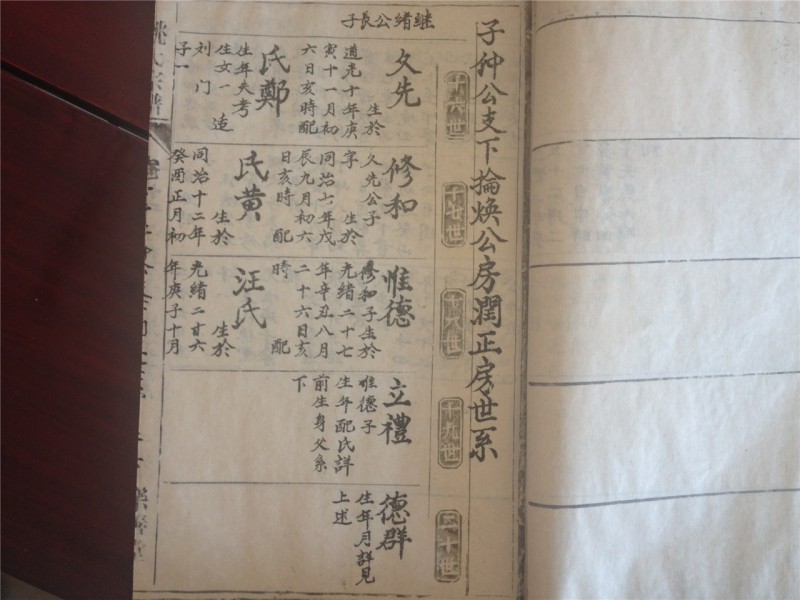 子仲公支下掄煥公房潤正房世系
十六世
十七世
十八世
十九世
二十世
継緒公長子
久先
生於
道光十年庚
寅十一月初
六日亥時配
氏鄭
生年失考
生女一 造
刘門
子一
修和
久先公子
字 生於
同治七年戊
辰九月初六
日亥時配
氏黄
生於
同治十二年
癸酉正月初
惟德
修和子生於
光緒二十七
年辛丑八月
二十六日亥
時 配
汪氏
生於
光緒二十六
年庚子十月
立禮
惟德子
生年配氏詳
前生身父系
下
德群
生年月詳見
上述